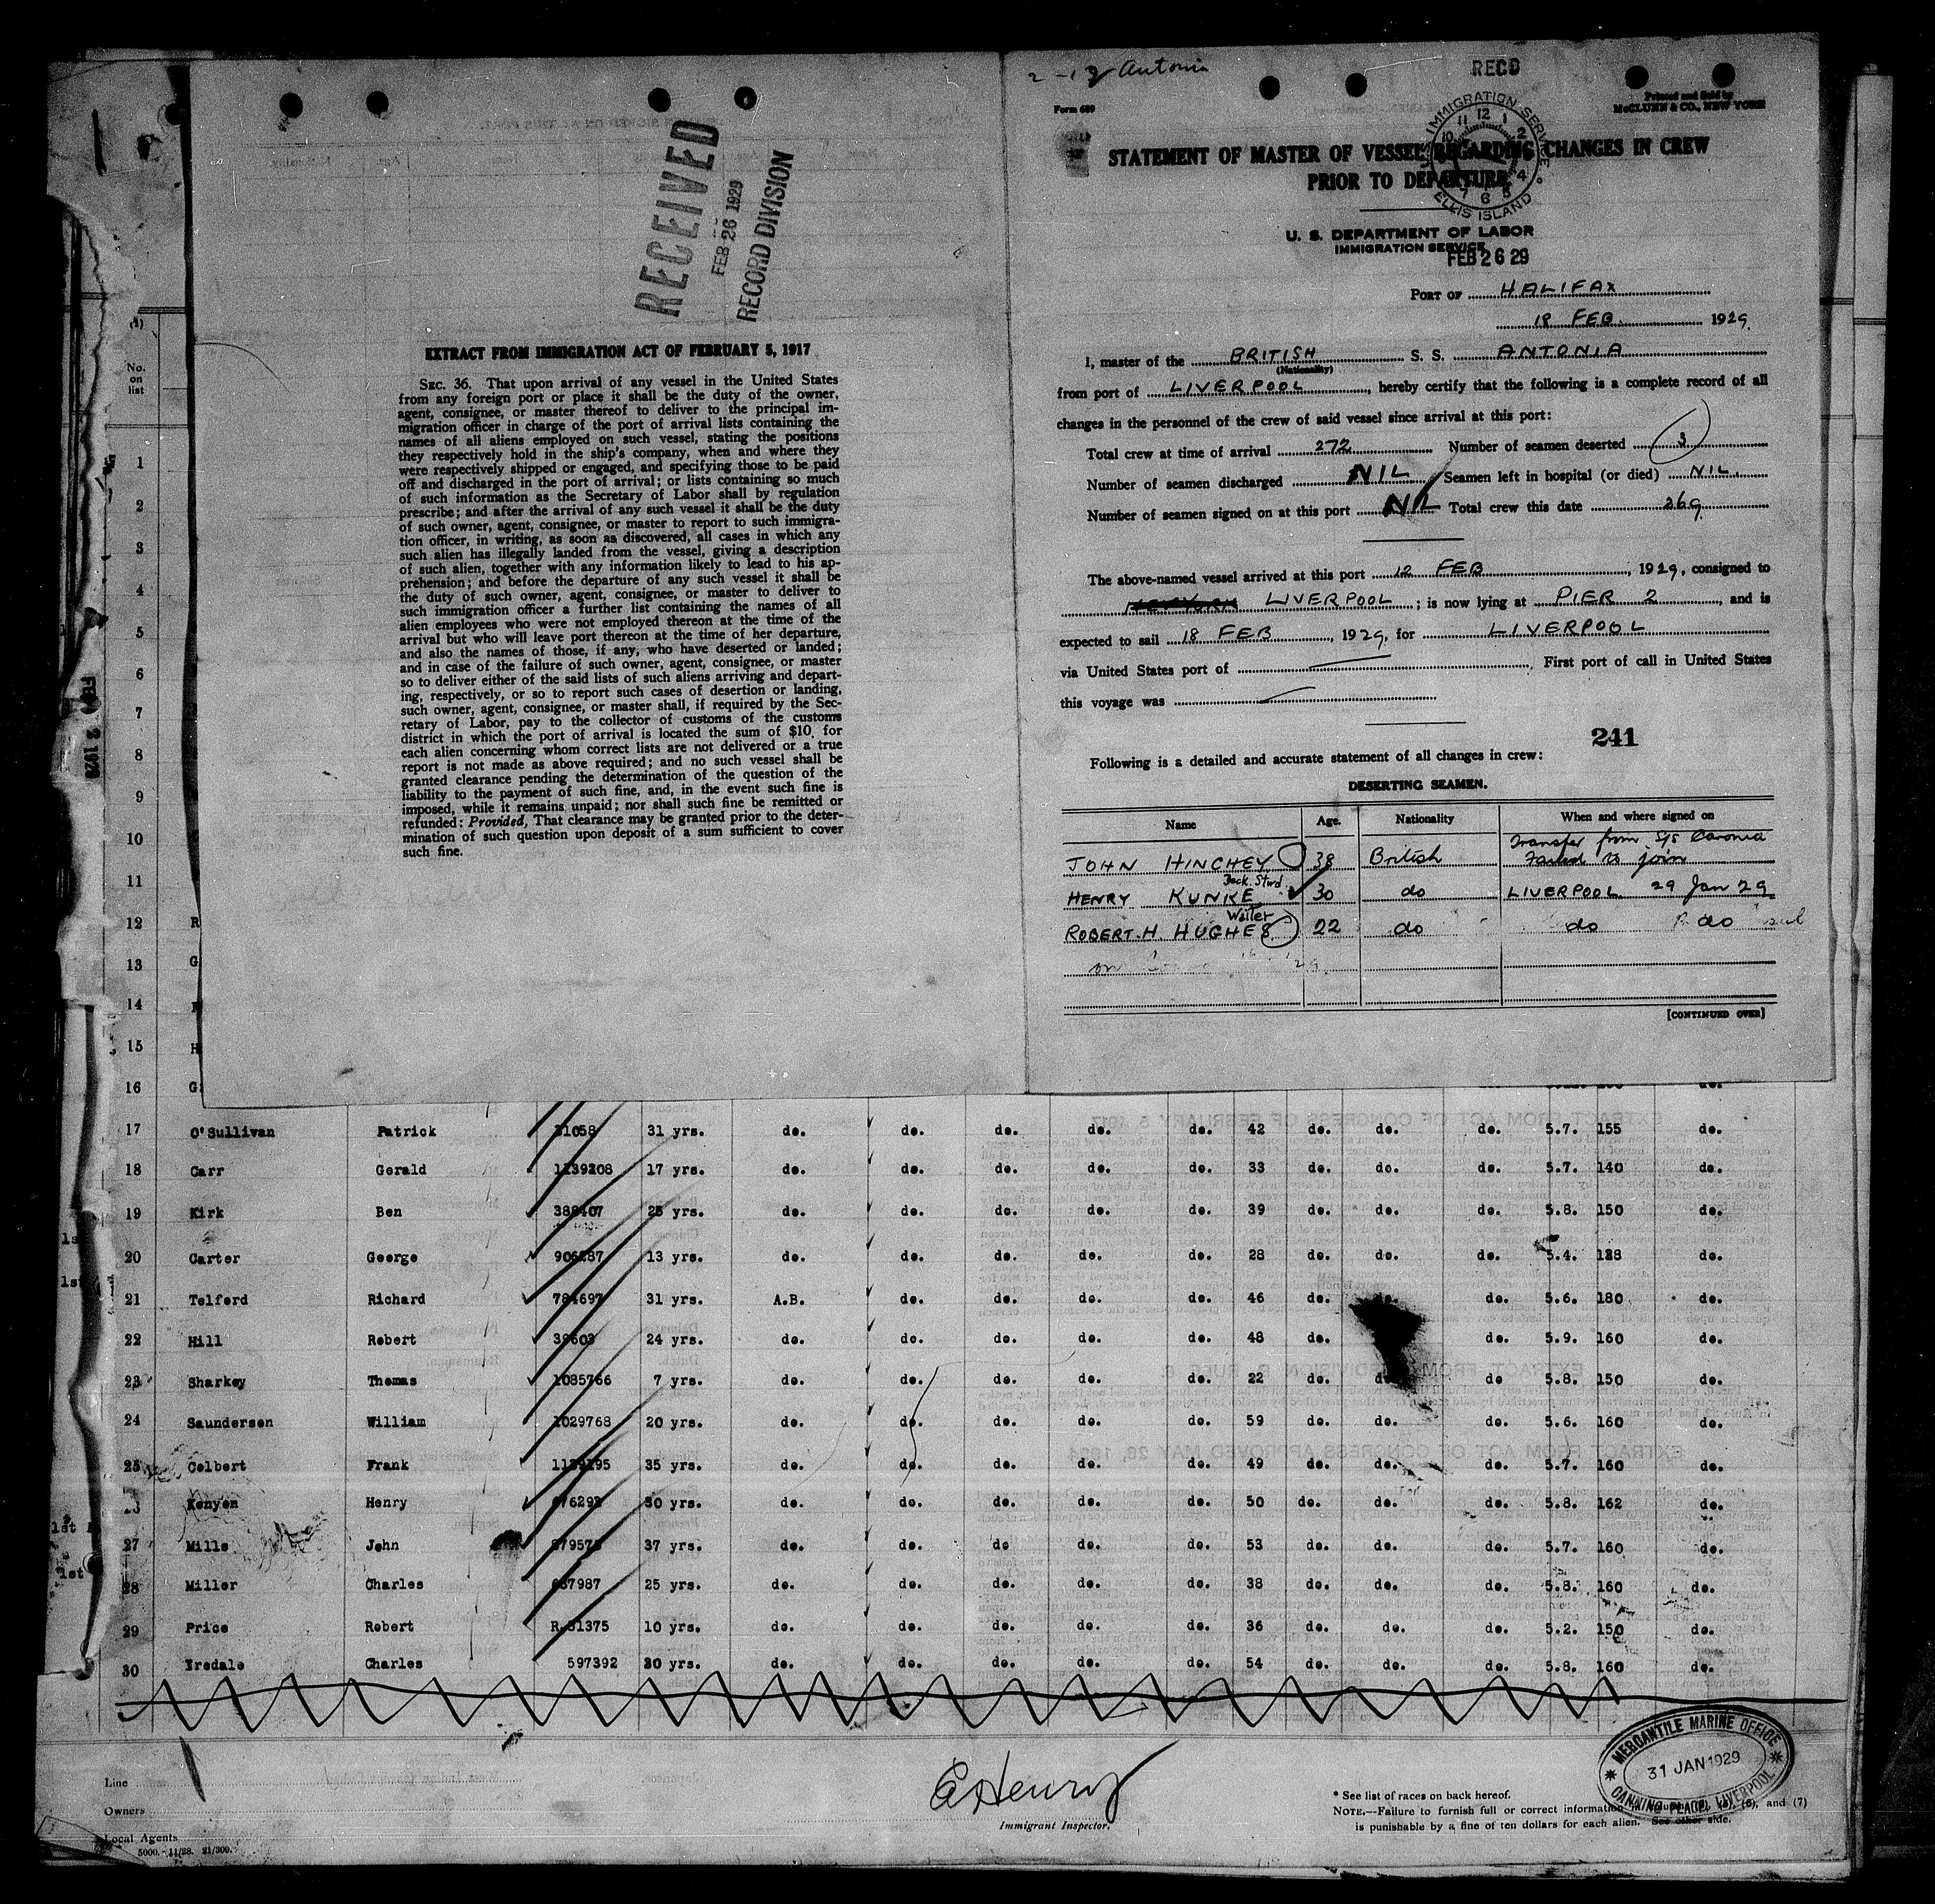 2-13 Antonia
RECD
Form 689
Printed and Sold by
McCLUNN & CO., NEW YORK
IMMIGRATION SERVICE
ELLIS ISLAND
STATEMENT OF MASTER OF VESSEL REGARDING CHANGES IN CREW
PRIOR TO DEPARTURE
U. S. DEPARTMENT OF LABOR
IMMIGRATION SERVICE
FEB 26 29
PORT OF HALIFAX
18 FEB. 1929.
I, master of the BRITISH S. S. ANTONIA
(Nationality)
from port of LIVERPOOL, hereby certify that the following is a complete record of all
changes in the personnel of the crew of said vessel since arrival at this port:
Total crew at time of arrival 272 Number of seamen deserted 3
Number of seamen discharged NIL Seamen left in hospital (or died) NIL.
Number of seamen signed on at this port NIL Total crew this date 269
The above-named vessel arrived at this port 12 FEB, 1929, consigned to
LIVERPOOL; is now lying at PIER 2, and is
expected to sail 18 FEB, 1929, for LIVERPOOL
via United States port of First port of call in United States
this voyage was
241
Following is a detailed and accurate statement of all changes in crew:
DESERTING SEAMEN.
Name Age. Nationality When and where signed on
JOHN HINCHEY 38 British Transfer from S/S Caronia
Failed to join
Deck Stwd.
HENRY KUNKE 30 do LIVERPOOL 29 Jan 29
Waiter
ROBERT. H. HUGHES 22 do do do
[CONTINUED OVER]
RECEIVED
FEB 26 1929
RECORD DIVISION
EXTRACT FROM IMMIGRATION ACT OF FEBRUARY 5, 1917
SEC. 36. That upon arrival of any vessel in the United States
from any foreign port or place it shall be the duty of the owner,
agent, consignee, or master thereof to deliver to the principal im-
migration officer in charge of the port of arrival lists containing the
names of all aliens employed on such vessel, stating the positions
they respectively hold in the ship's company, when and where they
were respectively shipped or engaged, and specifying those to be paid
off and discharged in the port of arrival; or lists containing so much
of such information as the Secretary of Labor shall by regulation
prescribe; and after the arrival of any such vessel it shall be the duty
of such owner, agent, consignee, or master to report to such immigra-
tion officer, in writing, as soon as discovered, all cases in which any
such alien has illegally landed from the vessel, giving a description
of such alien, together with any information likely to lead to his ap-
prehension; and before the departure of any such vessel it shall be
the duty of such owner, agent, consignee, or master to deliver to
such immigration officer a further list containing the names of all
alien employees who were not employed thereon at the time of the
arrival but who will leave port thereon at the time of her departure,
and also the names of those, if any, who have deserted or landed;
and in case of the failure of such owner, agent, consignee, or master
so to deliver either of the said lists of such aliens arriving and depart-
ing, respectively, or so to report such cases of desertion or landing,
such owner, agent, consignee, or master shall, if required by the Sec-
retary of Labor, pay to the collector of customs of the customs
district in which the port of arrival is located the sum of $10 for
each alien concerning whom correct lists are not delivered or a true
report is not made as above required; and no such vessel shall be
granted clearance pending the determination of the question of the
liability to the payment of such fine, and, in the event such fine is
imposed, while it remains unpaid; nor shall such fine be remitted or
refunded: Provided, That clearance may be granted prior to the deter-
mination of such question upon deposit of a sum sufficient to cover
such fine.
(1)
No.
on
list
1
2
3
4
5
6
7
8
9
10
11
12 R
13 G
14
15 H
16 G
17 O'Sullivan Patrick 31058 31 yrs. do. do. do. do. do. 42 do. do. do. 5.7. 155 do.
18 Carr Gerald 1139208 17 yrs. do. do. do. do. do. 33 do. do. do. 5.7. 140 do.
19 Kirk Ben 25 yrs. do. do. do. do. do. 39 do. do. do. 5.8. 150 do.
20 Carter George 13 yrs. do. do. do. do. do. 28 do. do. do. 5.4. 128 do.
21 Telford Richard 31 yrs. A.B. do. do. do. do. 46 do. do. do. 5.6. 180 do.
22 Hill Robert 39603 24 yrs. do. do. do. do. do. 48 do. do. 5.9. 160 do.
23 Sharkey Thomas 1085766 7 yrs. do. do. do. do. do. 22 do. do. do 5.8. 150 do.
24 Saunderson William 1029768 20 yrs. do. do. do. do. do. 59 do. do. do. 5.6. 160 do.
25 Colbert Frank 35 yrs. do. do. do. do. do. 49 do. do. do. 5.7. 160 do.
26 Kenyon Henry 30 yrs. do. do. do. do. do. 50 do. do. do. 5.8. 162 do.
27 Mills John 37 yrs. do. do. do do. do. 53 do. do. do. 5.7. 160 do.
28 Miller Charles 637987 25 yrs. do. do. do. do. do. 38 do. do. do. 5.8. 160 do.
29 Price Robert 10 yrs. do. do. do. do. do. 36 do. do. do. 5.2. 150 do.
30 Iredale Charles 597392 30 yrs. do. do. do. do. do. 54 do. do. do. 5.8. 160 do.
MERCANTILE MARINE OFFICE
31 JAN 1929
CANNING PLACE, LIVERPOOL
Line
Owners
Local Agents
5000.-11/28. 21/309.
E Henry
Immigrant Inspector.
* See list of races on back hereof.
NOTE.—Failure to furnish full or correct information (6), and (7)
is punishable by a fine of ten dollars for each alien. See other side.